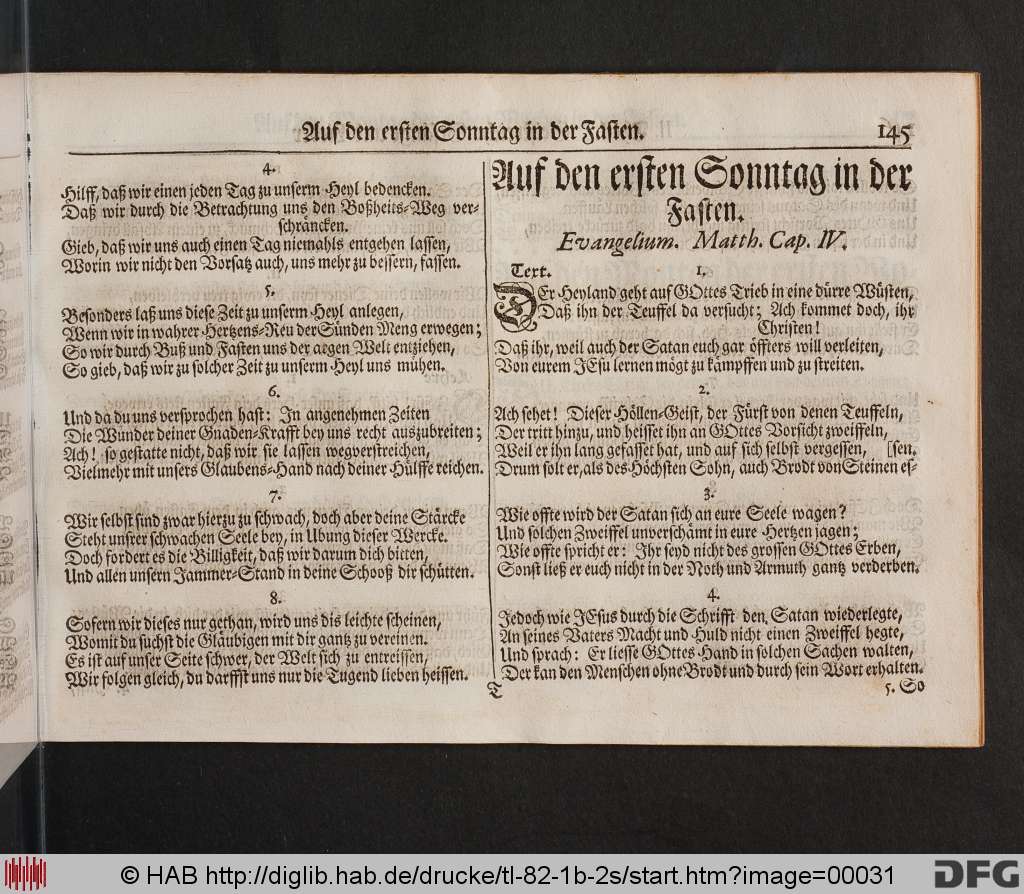 Auf den ersten Sonntag in der Fasten. 145
4.
Hilff, daß wir einen jeden Tag zu unserm Heyl bedencken.
Daß wir durch die Betrachtung uns den Boßheits-Weg ver-
schräncken.
Gieb, daß wir uns auch einen Tag niemahls entgehen lassen,
Worin wir nicht den Vorsatz auch, uns mehr zu bessern, fassen.
5.
Besonders laß uns diese Zeit zu unserm Heyl anlegen,
Wenn wir in wahrer Hertzens-Reu der Sünden Meng erwegen;
So wir durch Buß und Fasten uns der argen Welt entziehen,
So gieb, daß wir zu solcher Zeit zu unserm Heyl uns mühen.
6.
Und da du uns versprochen hast: In angenehmen Zeiten
Die Wunder deiner Gnaden-Krafft bey uns recht auszubreiten;
Ach! so gestatte nicht, daß wir sie lassen wegverstreichen,
Vielmehr mit unsers Glaubens-Hand nach deiner Hülffe reichen.
7.
Wir selbst sind zwar hierzu zu schwach, doch aber deine Stärcke
Steht unsrer schwachen Seele bey, in Ubung dieser Wercke.
Doch fordert es die Billigkeit, daß wir darum dich bitten,
Und allen unsern Jammer-Stand in deine Schooß dir schütten.
8.
Sofern wir dieses nur gethan, wird uns dis leichte scheinen,
Womit du suchst die Gläubigen mit dir gantz zu vereinen.
Es ist auf unser Seite schwer, der Welt sich zu entreissen,
Wir folgen gleich, du darffst uns nur die Tugend lieben heissen.
Auf den ersten Sonntag in der
Fasten.
Evangelium. Matth. Cap. IV.
Text. 1.
DEr Heyland geht auf GOttes Trieb in eine dürre Wüsten,
Daß ihn der Teuffel da versucht; Ach kommet doch, ihr
Christen!
Daß ihr, weil auch der Satan euch gar öffters will verleiten,
Von eurem JEsu lernen mögt zu kämpffen und zu streiten.
2.
Ach sehet! Dieser Höllen-Geist, der Fürst von denen Teuffeln,
Der tritt hinzu, und heisset ihn an GOttes Vorsicht zweiffeln,
Weil er ihn lang gefastet hat, und auf sich selbst vergessen, [sen.
Drum solt er, als des Höchsten Sohn, auch Brodt von Steinen es-
3.
Wie offte wird der Satan sich an eure Seele wagen?
Und solchen Zweiffel unverschämt in eure Hertzen jagen;
Wie offte spricht er: Ihr seyd nicht des grossen GOttes Erben,
Sonst ließ er euch nicht in der Noth und Armuth gantz verderben.
4.
Jedoch wie JEsus durch die Schrifft den Satan wiederlegte,
An seines Vaters Macht und Huld nicht einen Zweiffel hegte,
Und sprach: Er liesse GOttes Hand in solchen Sachen walten,
Der kan den Menschen ohne Brodt und durch sein Wort erhalten.
T 5. So
© HAB http://diglib.hab.de/drucke/tl-82-1b-2s/start.htm?image=00031
DFG